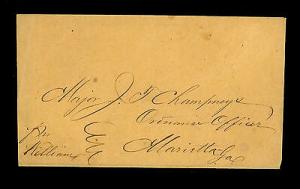 Major J. T. Champneys
Ordnance Officer
Marietta
Ga
per
William